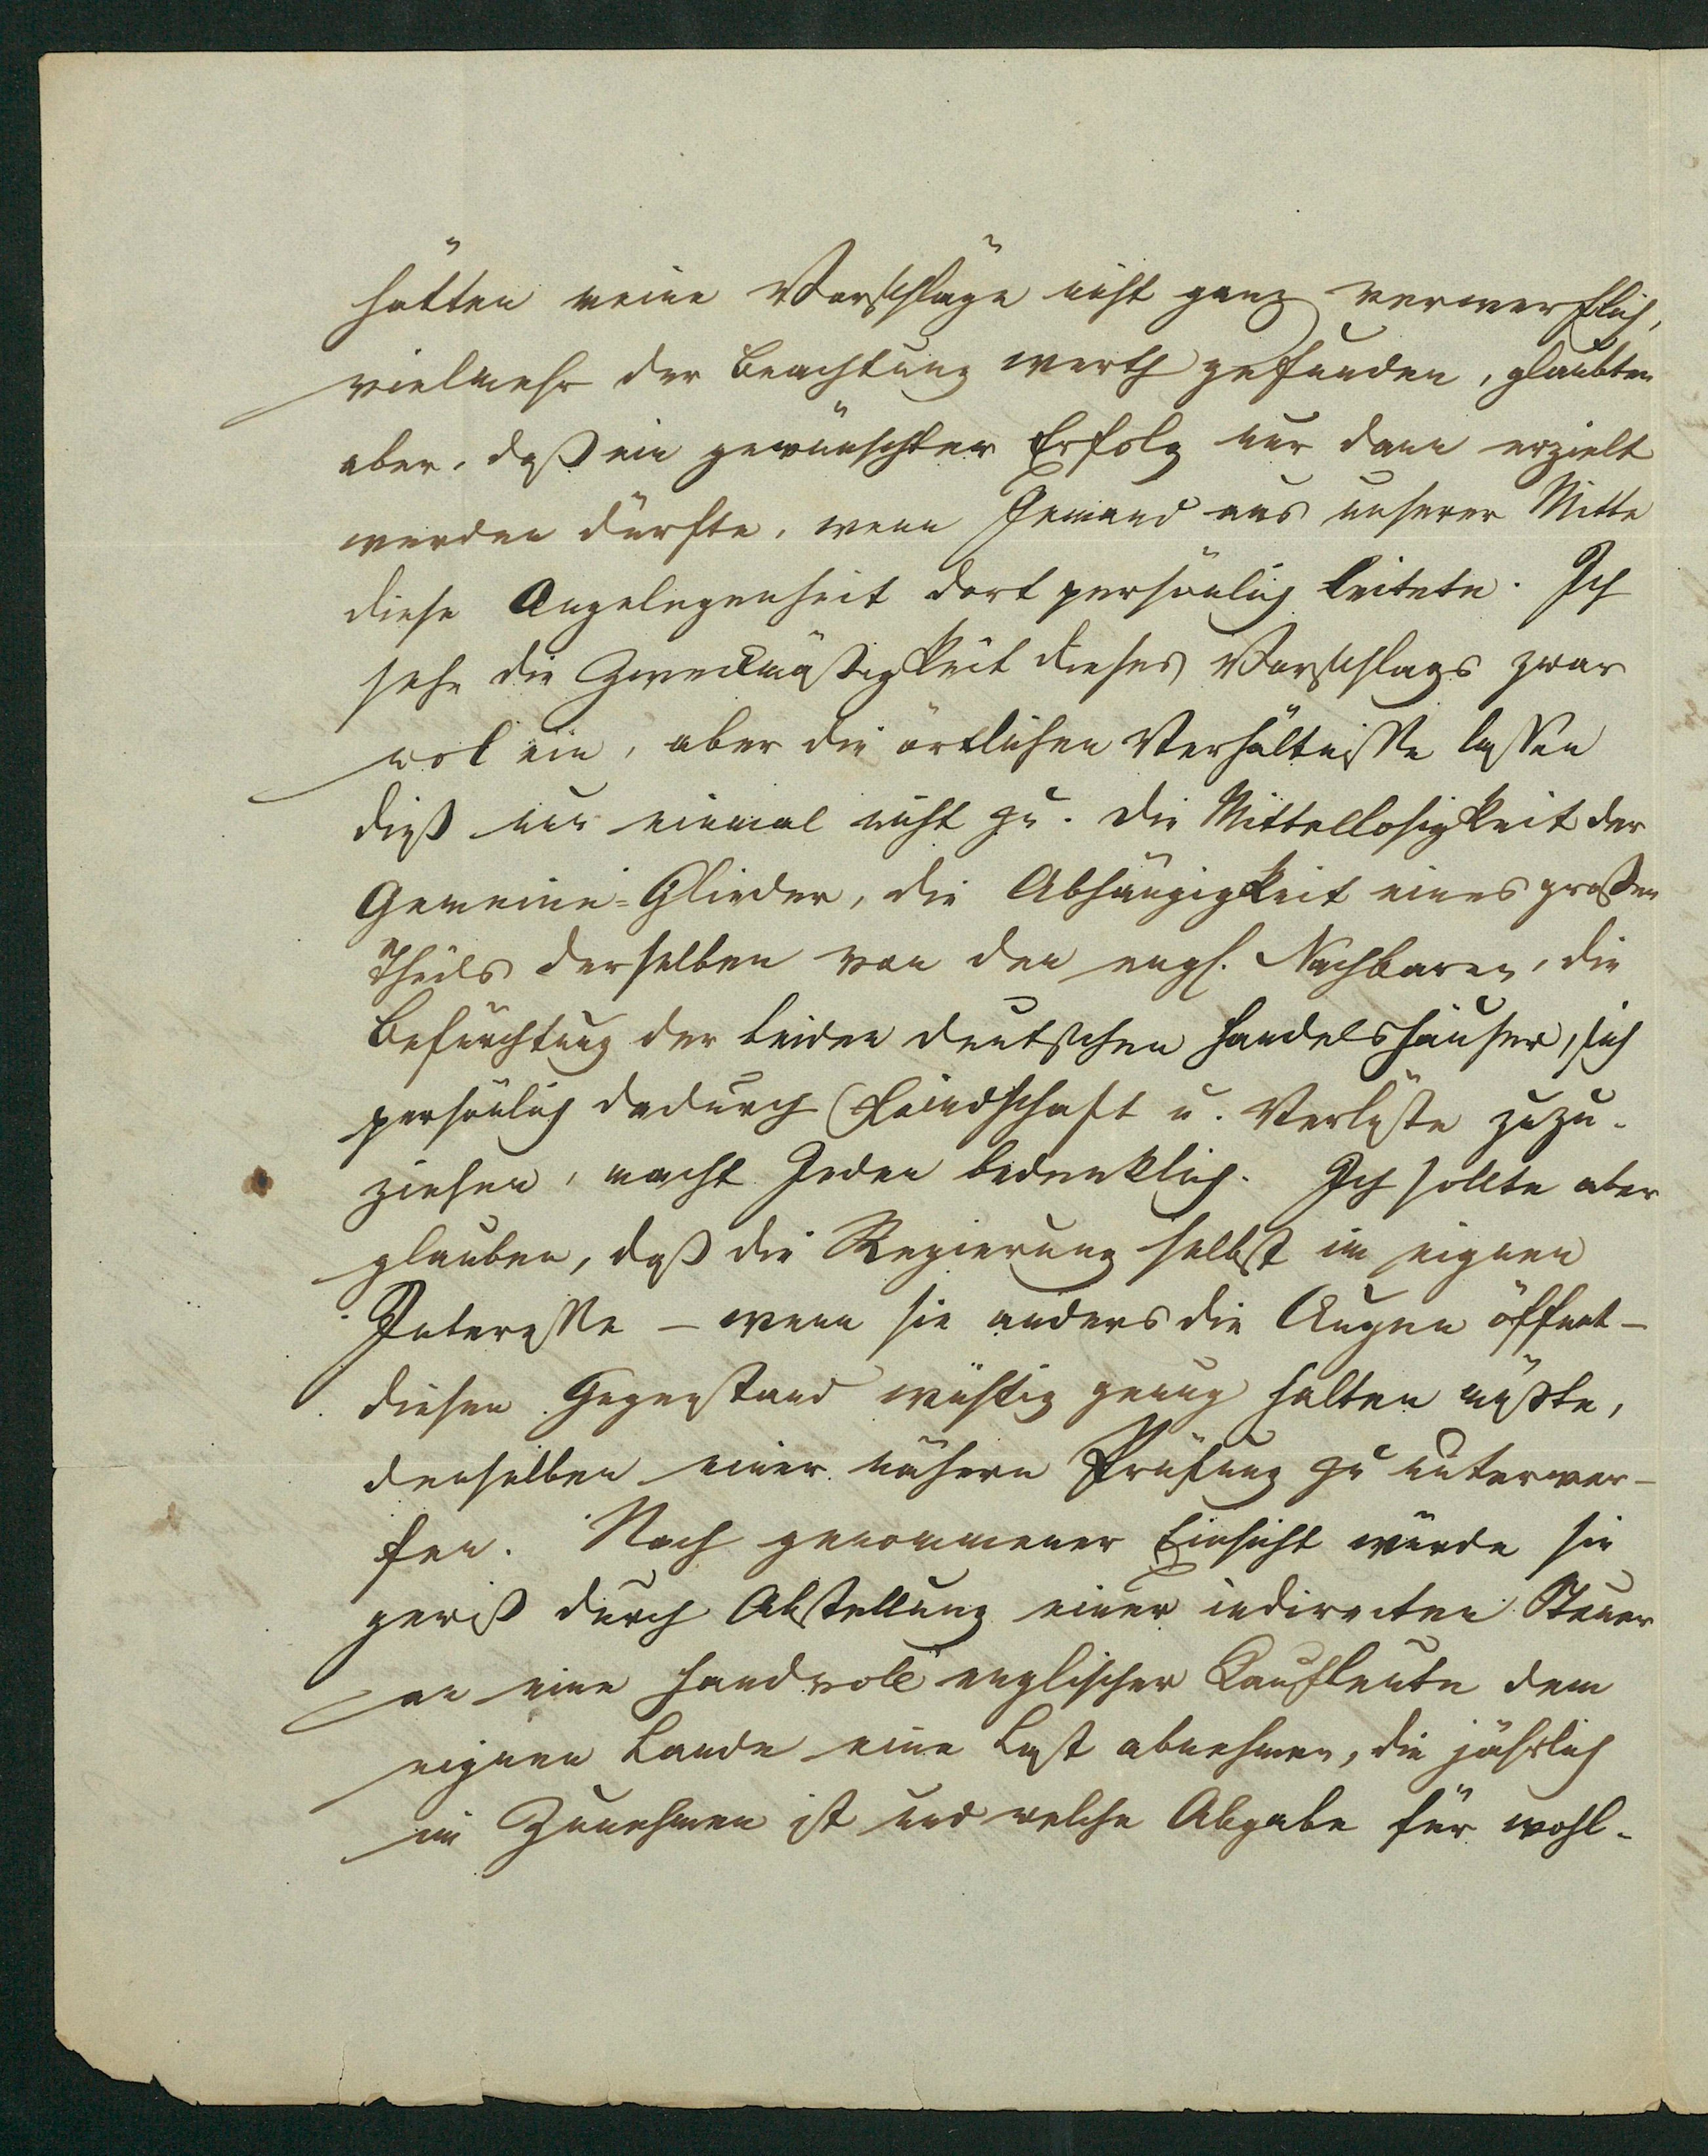 hätten meine Vorschläge nicht ganz verwerflich,
vielmehr der Beachtung werth gefunden, glaubten
aber, daß ein gewünschter Erfolg nur dann erzielt
werden dürfte, wenn Jemand aus unserer Mitte
diese Angelegenheit dort persönlich leitete. Ich
sehe die Zweckmäßigkeit dieses Vorschlags zwar
wol ein, aber die örtlichen Verhältniße laßen
dieß nun einmal nicht zu. Die Mittellosigkeit der
Gemeine-Glieder, die Abhängigkeit eines großen
Theils derselben von den engl. Nachbaren, die
Befürchtung der beiden deutschen Handelshäuser, sich
persönlich dadurch Feindschaft u. Verluste zuzu-
ziehen, macht Jeden bedenklich. Ich sollte aber
glauben, daß die Regierung selbst im eignen
Intereße – wenn sie anders die Augen öffnet –
diesen Gegenstand wichtig genug halten müßte,
denselben einer nähern Prüfung zu unterwer-
fen. Nach genommener Einsicht würde sie
gewiß durch Abstellung einer indirecten Steuer
an eine Handvoll englischer Kaufleute dem
eignen Lande eine Last abnehmen, die jährlich
im Zunehmen ist und welche Abgabe für wohl-